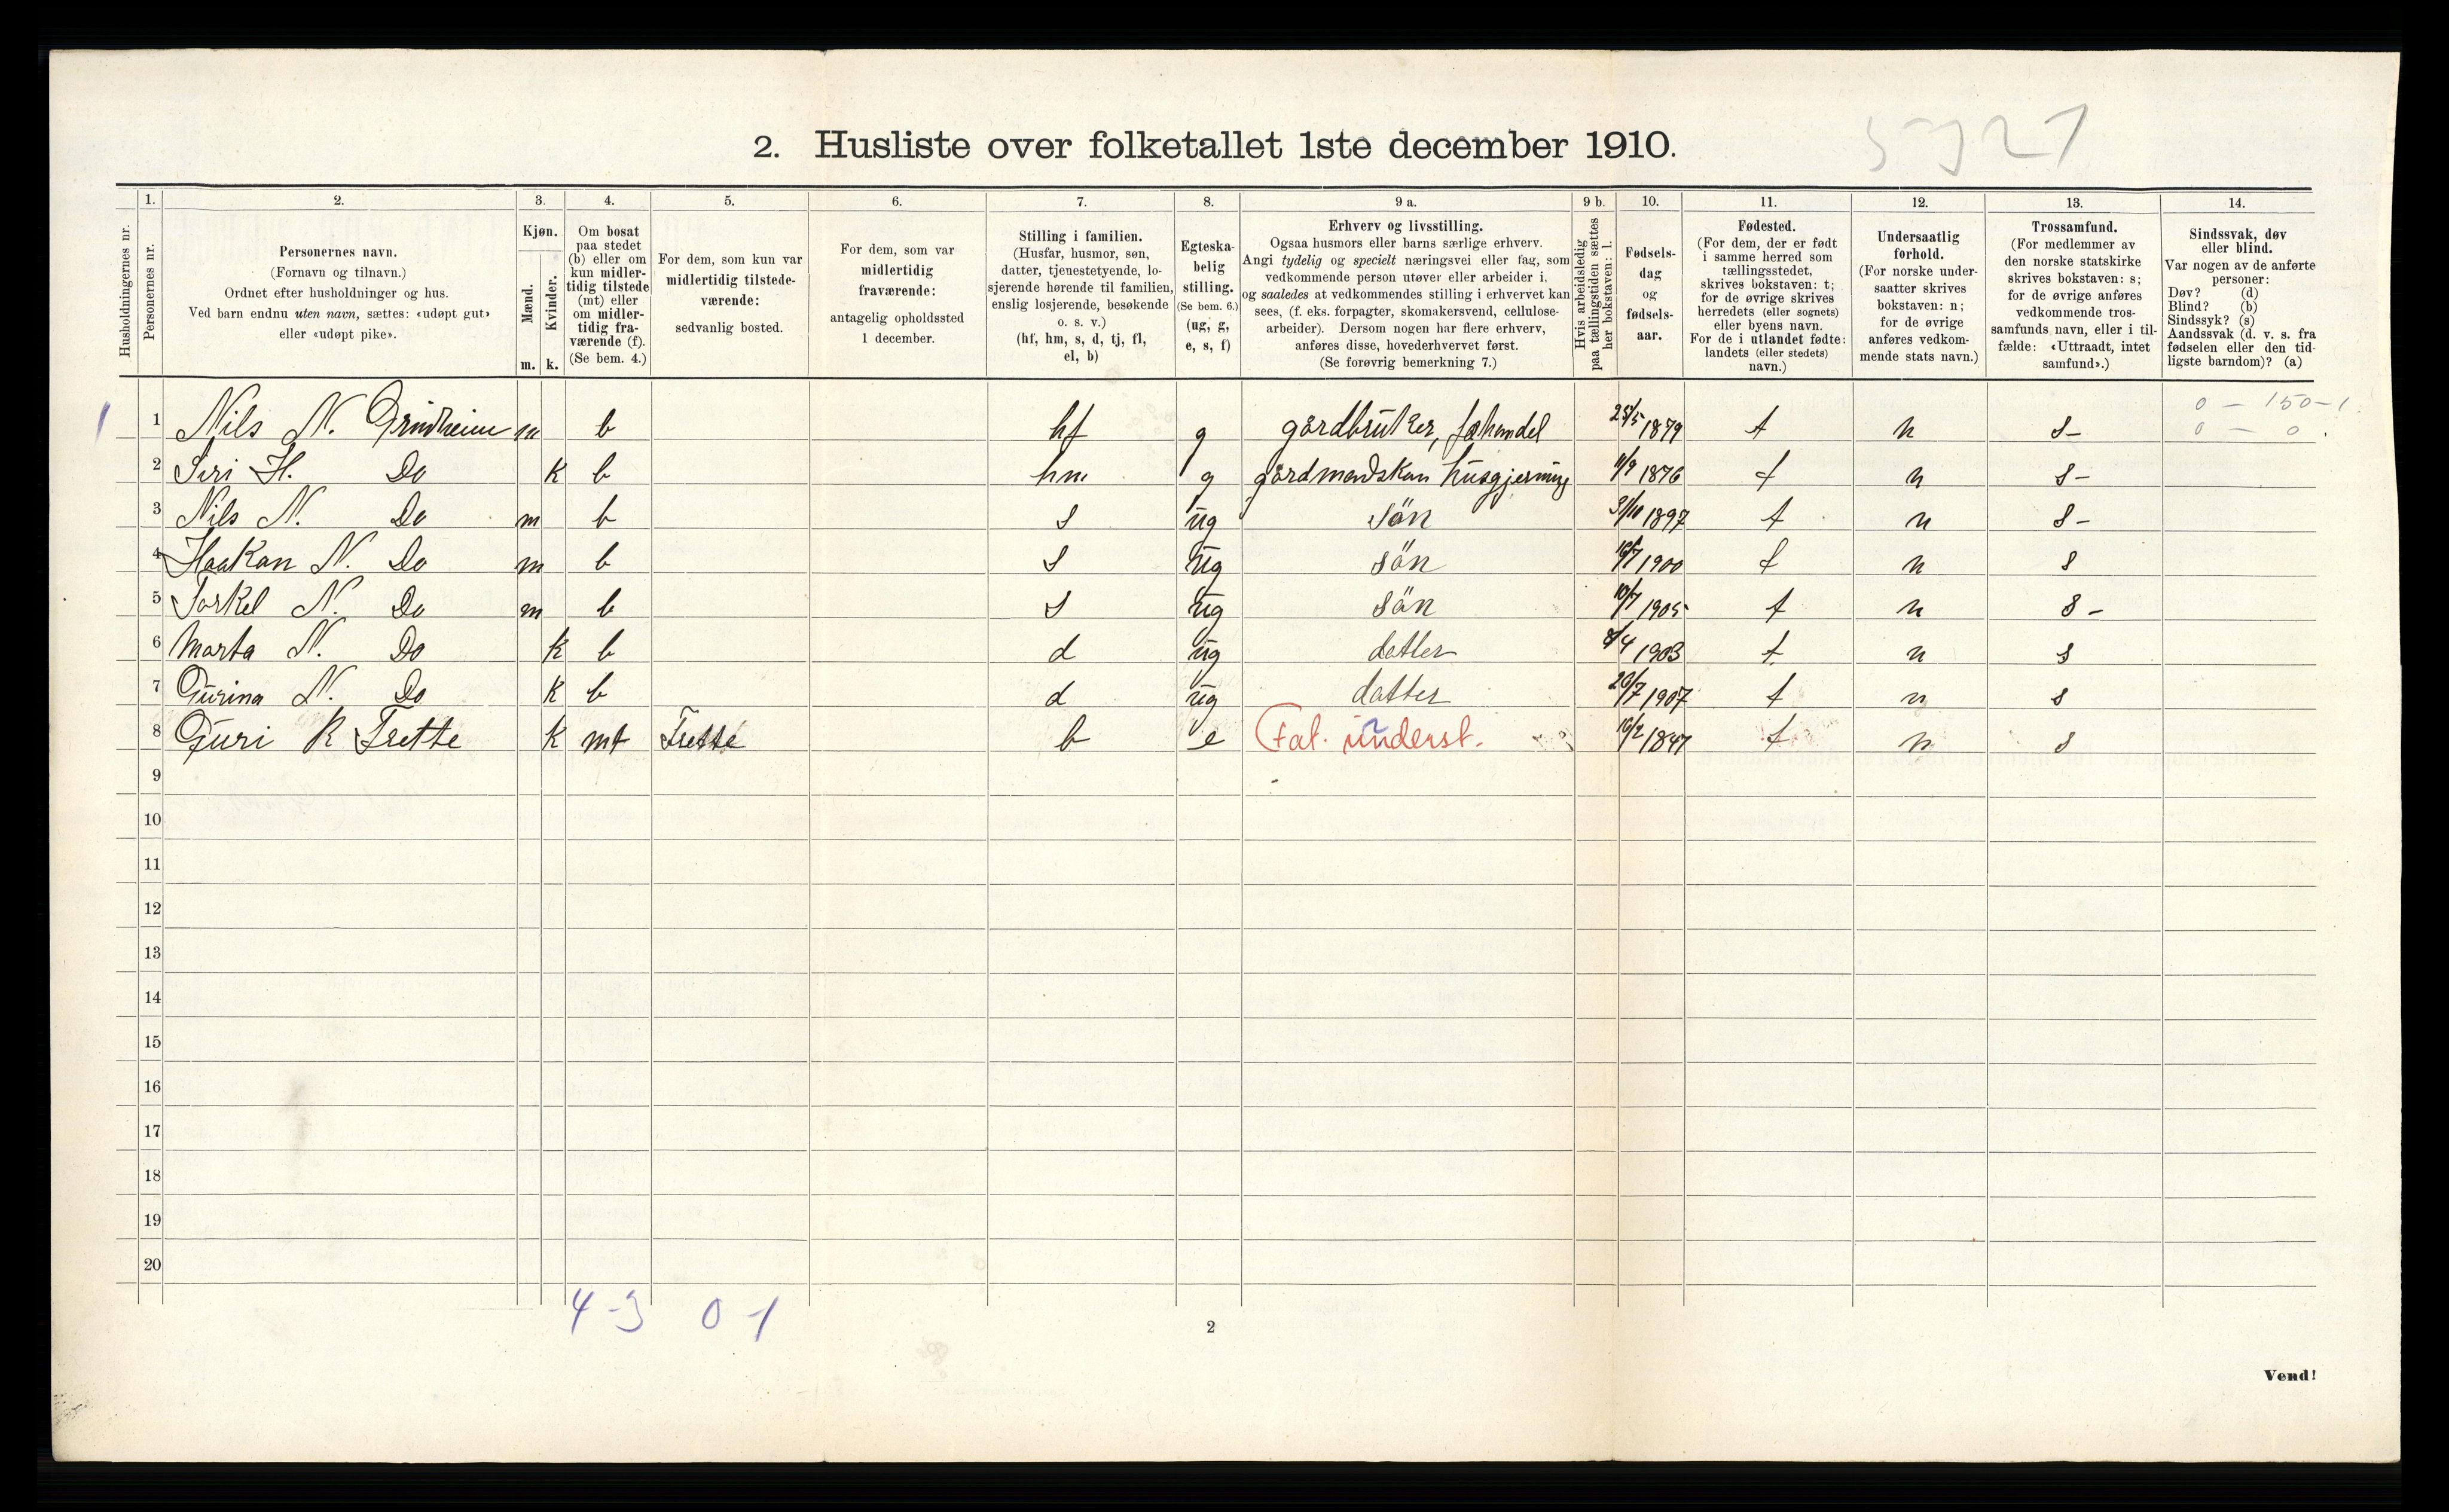 5921
2. Husliste over folketallet 1ste december 1910.
Husholdningernes nr.
1.
Personernes nr.
2.
Personernes navn.
(Fornavn og tilnavn.)
Ordnet efter husholdninger og hus.
Ved barn endnu uten navn, sættes: «udøpt gut»
eller «udøpt pike».
3.
Kjøn.
Mænd.
Kvinder.
m. k.
4.
Om bosat
paa stedet
(b) eller om
kun midler-
tidig tilstede
(mt) eller
om midler-
tidig fra-
værende (f).
(Se bem. 4.)
5.
For dem, som kun var
midlertidig tilstede-
værende:
sedvanlig bosted.
6.
For dem, som var
midlertidig
fraværende:
antagelig opholdssted
1 december.
7.
Stilling i familien.
(Husfar, husmor, søn,
datter, tjenestetyende, lo-
sjerende hørende til familien,
enslig losjerende, besøkende
o. s. v.)
(hf, hm, s, d, tj, fl,
el, b)
8.
Egteska-
belig
stilling.
(Se bem. 6.)
(ug, g,
e, s, f)
9 a.
Erhverv og livsstilling.
Ogsaa husmors eller barns særlige erhverv.
Angi tydelig og specielt næringsvei eller fag, som
vedkommende person utøver eller arbeider i,
og saaledes at vedkommendes stilling i erhvervet kan
sees, (f. eks. forpagter, skomakersvend, cellulose-
arbeider). Dersom nogen har flere erhverv,
anføres disse, hovederhvervet først.
(Se forøvrig bemerkning 7.)
9 b.
Hvis arbeidsledig
paa tællingstiden sættes
her bokstaven: l.
10.
Fødsels-
dag
og
fødsels-
aar.
11.
Fødested.
(For dem, der er født
i samme herred som
tællingsstedet,
skrives bokstaven: t;
for de øvrige skrives
herredets (eller sognets)
eller byens navn.
For de i utlandet fødte:
landets (eller stedets)
navn.)
12.
Undersaatlig
forhold.
(For norske under-
saatter skrives
bokstaven: n;
for de øvrige
anføres vedkom-
mende stats navn.)
13.
Trossamfund.
(For medlemmer av
den norske statskirke
skrives bokstaven: s;
for de øvrige anføres
vedkommende tros-
samfunds navn, eller i til-
fælde: «Uttraadt, intet
samfund».)
14.
Sindssvak, døv
eller blind.
Var nogen av de anførte
personer:
Døv? (d)
Blind? (b)
Sindssyk? (s)
Aandssvak (d. v. s. fra
fødselen eller den tid-
ligste barndom)? (a)
0 - 150 - 1
0 - 0
1 1 Nils N. Grindheim m b hf g gårdbruker, fæhandel 25/5 1879 t n s-
2 Siri H. Do k b hm g gårdmandskon husgjerning 11/9 1876 t n s-
3 Nils N. Do m b s ug sön 31/10 1897 t n s-
4 Haakan N. Do m b s ug sön 16/7 1900 t n s
5 Torkel N. Do m b s ug sön 10/7 1905 t n s-
6 Marta N. Do k b d ug datter 8/4 1903 t n s
7 Gurina N. Do k b d ug datter 20/7 1907 t n s
8 Guri K Trette k mt Trette b e Fat. underst. 16/2 1847 t n s
9
10
11
12
13
14
15
16
17
18
19
20
4-3 0-1
2
Vend!